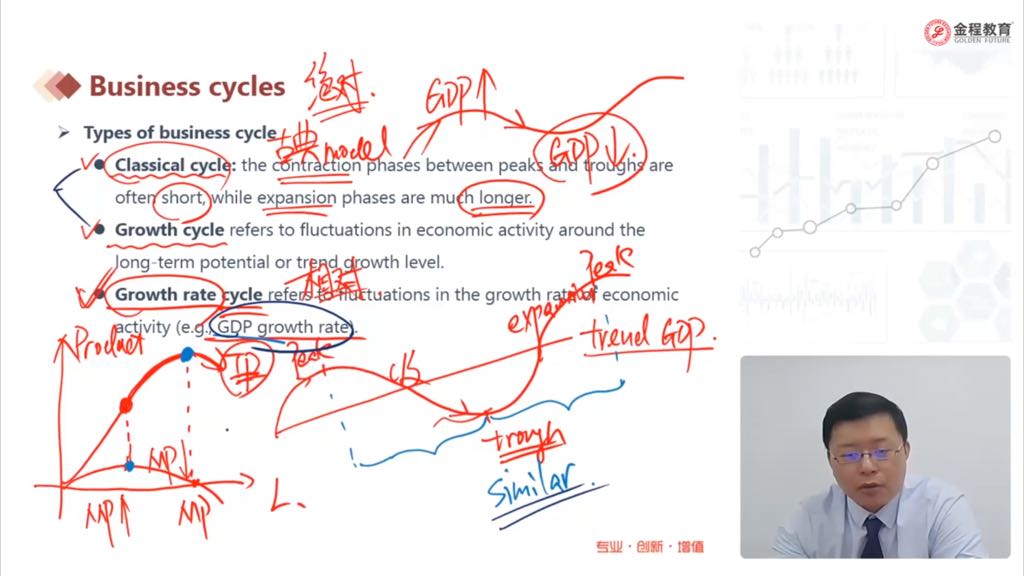 金程教育
GOLDEN FUTURE
Business cycles
绝对.
GDP↑
Types of business cycle
古典model
GDP↓.
Classical cycle: the contraction phases between peaks and troughs are
often short, while expansion phases are much longer.
Growth cycle refers to fluctuations in economic activity around the
long-term potential or trend growth level.
相对.
Peak
Growth rate cycle refers to fluctuations in the growth rate of economic
activity (e.g., GDP growth rate).
expansion
trend GDP.
Product
Peak
TP
trough
similar.
MP↓
MP↑
MP
L.
专业·创新·增值